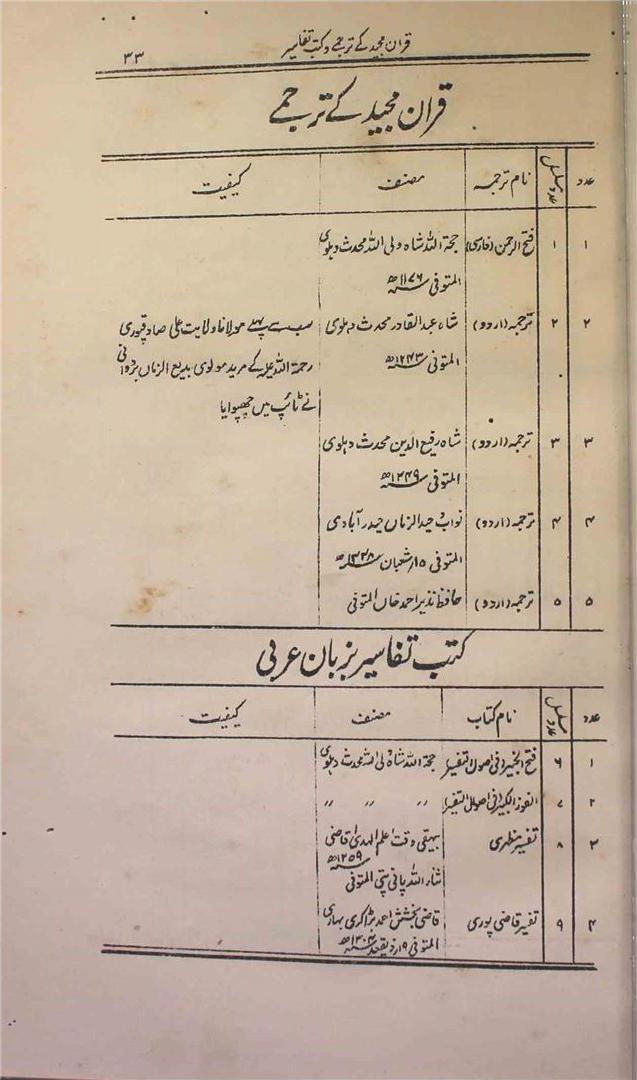 قرآن مجید کے ترجمے و کتب تفاسیر ۳۳
قرآن مجید کے ترجمے
عدد عدد مسلسل نام ترجمہ مصنف کیفیت
۱ ۱ فتح الرحمن (فارسی) حجۃ اللہ شاہ ولی اللہ محدث دہلوی
المتوفی ۱۱۷۶ھ
۲ ۲ ترجمہ (اردو) شاہ عبدالقادر محدث دہلوی سب سے پہلے مولانا ولایت علی صادقپوری
المتوفی ۱۲۴۳ھ رحمۃ اللہ علیہ کے مرید مولوی بدیع الزماں بردوانی
نے ٹائپ میں چھپوایا
۳ ۳ ترجمہ (اردو) شاہ رفیع الدین محدث دہلوی
المتوفی ۱۲۴۹ھ
۴ ۴ ترجمہ (اردو) نواب وحید الزماں حیدرآبادی
المتوفی ۱۵ شعبان ۱۳۳۸ھ
۵ ۵ ترجمہ (اردو) حافظ نذیر احمد خاں المتوفی
کتب تفاسیر بزبان عربی
عدد عدد مسلسل نام کتاب مصنف کیفیت
۱ ۶ فتح الخبیر فی اصول التفسیر حجۃ اللہ شاہ ولی اللہ محدث دہلوی
۲ ۷ الفوز الکبیر فی اصول التفسیر 〃 〃 〃
۳ ۸ تفسیر مظہری بیہقی وقت اعلم الہدیٰ قاضی
ثناء اللہ پانی پتی المتوفی ۱۲۵۹ھ
۴ ۹ تفسیر قاضی پوری قاضی بخشش احمد بڑاکری بہاری
المتوفی ۱۹ ذیقعد